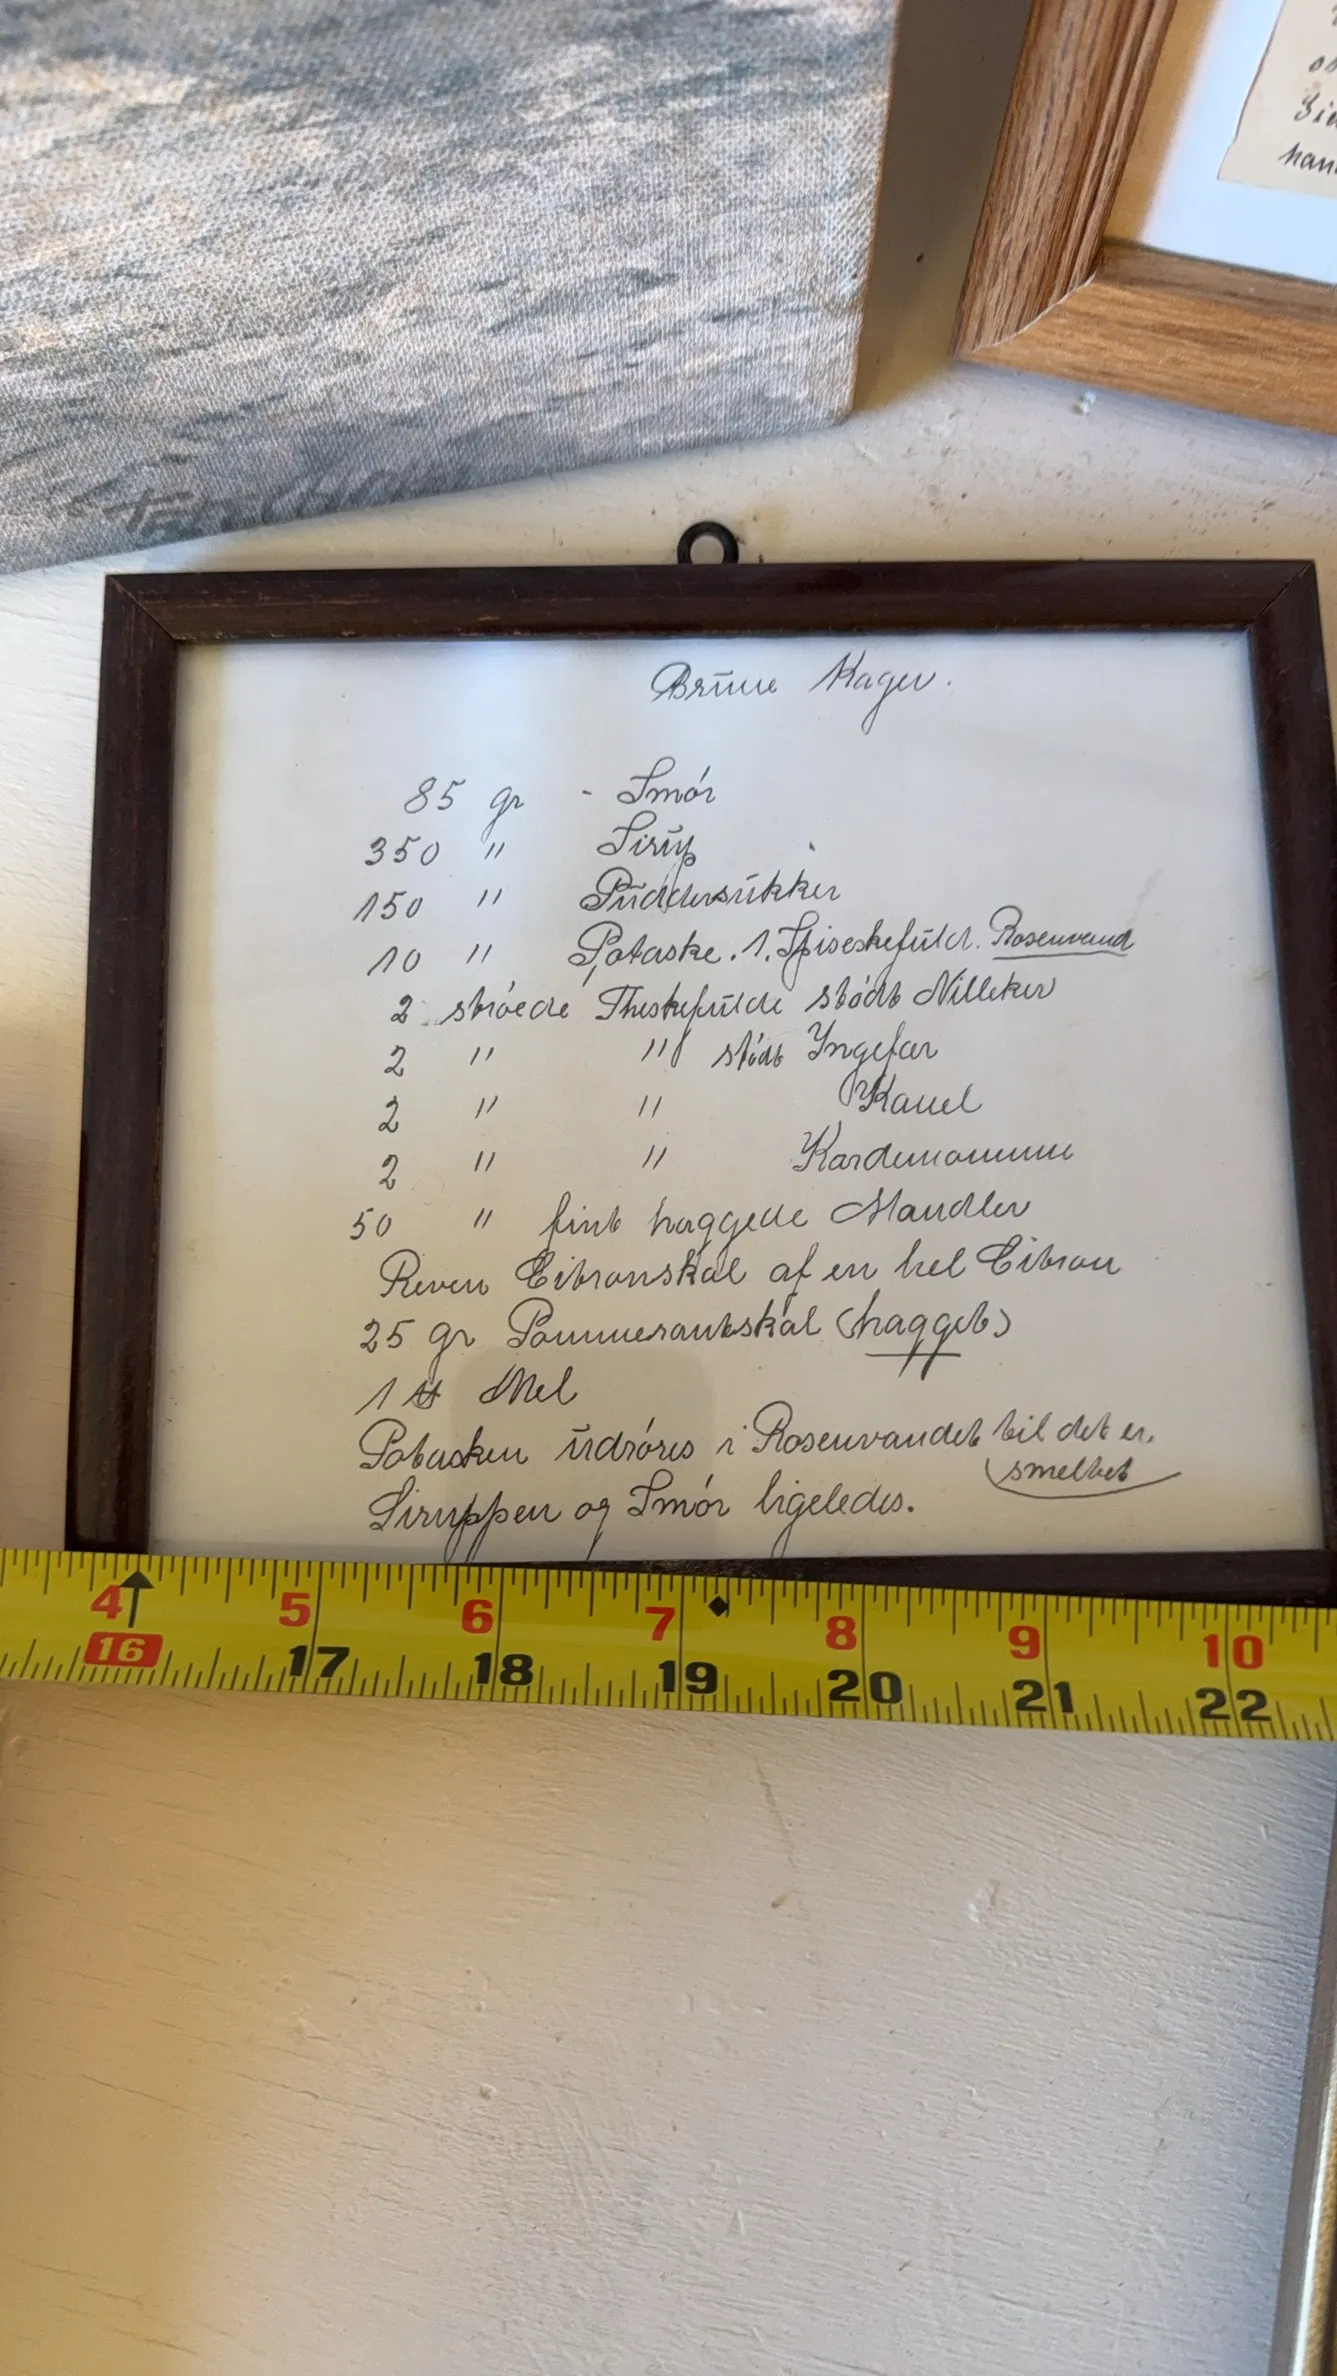 han
Brune Kager.
85 gr - Smór
350 " Sirup
150 " Puddersukker
10 " Potaske. 1. Spiseskefuld. Rosenvand
2 stróede Theskefulde stódt Nilleker
2 " " stódt Yngefær
2 " " Kanel
2 " " Kardemomme
50 " fint haggede Mandler
Reven Citronskal af en hel Citron
25 gr Pommerantskal (hagget)
1 ℔ Mel
Potasken udróres i Rosenvandet til det er.
smeltet
Siruppen og Smór ligeledes.
4 5 6 7 8 9 10
16 17 18 19 20 21 22